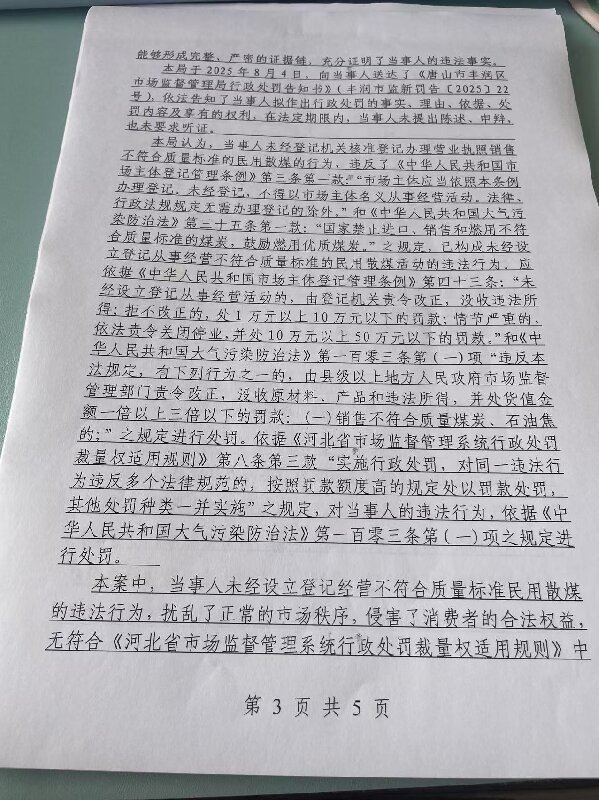 能够形成完整、严密的证据链，充分证明了当事人的违法事实。
本局于2025年8月4日，向当事人送达了《唐山市丰润区
市场监督管理局行政处罚告知书》（丰润市监新罚告〔2025〕22
号），依法告知了当事人拟作出行政处罚的事实、理由、依据、处
罚内容及享有的权利，在法定期限内，当事人未提出陈述、申辩，
也未要求听证。
本局认为，当事人未经登记机关核准登记办理营业执照销售
不符合质量标准的民用散煤的行为，违反了《中华人民共和国市
场主体登记管理条例》第三条第一款：“市场主体应当依照本条例
办理登记。未经登记，不得以市场主体名义从事经营活动。法律、
行政法规规定无需办理登记的除外。”和《中华人民共和国大气污
染防治法》第三十五条第一款：“国家禁止进口、销售和燃用不符
合质量标准的煤炭，鼓励燃用优质煤炭。”之规定，已构成未经设
立登记从事经营不符合质量标准的民用散煤活动的违法行为，应
依据《中华人民共和国市场主体登记管理条例》第四十三条：“未
经设立登记从事经营活动的，由登记机关责令改正，没收违法所
得；拒不改正的，处1万元以上10万元以下的罚款；情节严重的，
依法责令关闭停业，并处10万元以上50万元以下的罚款。”和《中
华人民共和国大气污染防治法》第一百零三条第（一）项“违反本
法规定，有下列行为之一的，由县级以上地方人民政府市场监督
管理部门责令改正，没收原材料、产品和违法所得，并处货值金
额一倍以上三倍以下的罚款：（一）销售不符合质量煤炭、石油焦
的；”之规定进行处罚。依据《河北省市场监督管理系统行政处罚
裁量权适用规则》第八条第三款“实施行政处罚，对同一违法行
为违反多个法律规范的，按照罚款额度高的规定处以罚款处罚，
其他处罚种类一并实施”之规定，对当事人的违法行为，依据《中
华人民共和国大气污染防治法》第一百零三条第（一）项之规定进
行处罚。
本案中，当事人未经设立登记经营不符合质量标准民用散煤
的违法行为，扰乱了正常的市场秩序，侵害了消费者的合法权益，
无符合《河北省市场监督管理系统行政处罚裁量权适用规则》中
第 3 页 共 5 页